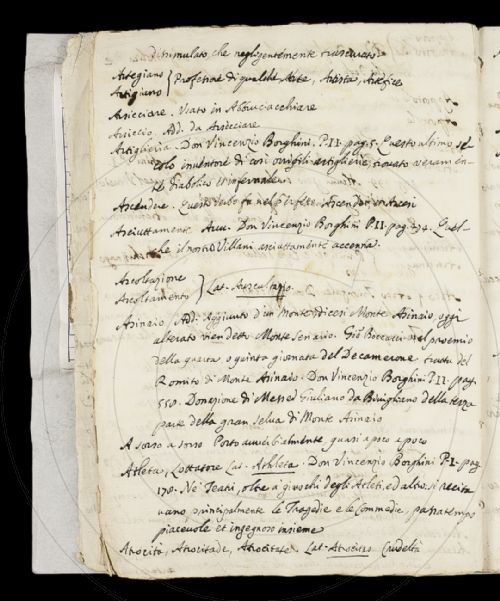 dissimulato, che negligentemente riserrato.
Artegiano } Professore di qualche Arte, Artista, Artefice
Artigiano
Arsicciare. Usato in Abbruciacchiare
Arsiccio. Add. da Arsicciare
Artiglieria. Don Vincenzio Borghini. P. II. pag. 5. Questo ultimo se-
colo inventore di così orribili artiglierie, trovato veramen-
te diabolico et infernale
Ascendere. Questo verbo fa nel
Asciuttamente Avv. Don Vincenzio Borghini P. II. pag. 274. Quel-
che il nostro Villani asciuttamente accenna.
Ascoltazione
Ascoltamento } Lat. Auscultatio.
Asinaio, Add. Aggiunto d'un Monte, dicesi Monte Asinaio, oggi
alterato vien detto Monte Senario. Gio. Boccacci nel proemio
della quarta o quinta giornata del Decamerone tratta del
Romito di Monte Asinaio. Don Vincenzio Borghini P. II. pag.
550. Donazione di Messer Giuliano da Bivigliano della terza
parte della gran selva di Monte Asinaio
A sorso a sorso Posto avverbialmente, quasi a poco a poco
Atleta, Lottatore Lat. Athleta. Don Vincenzio Borghini P. I. pag.
178. Ne' Teatri, oltre a' giuochi degli Atleti, ed altro, si recita
vano principalmente le Tragedie e le Commedie, passatempo
piacevole et ingegnoso insieme
Atrocità, Atrocitade, Atrocitate. Lat. Atrocitas Crudeltà